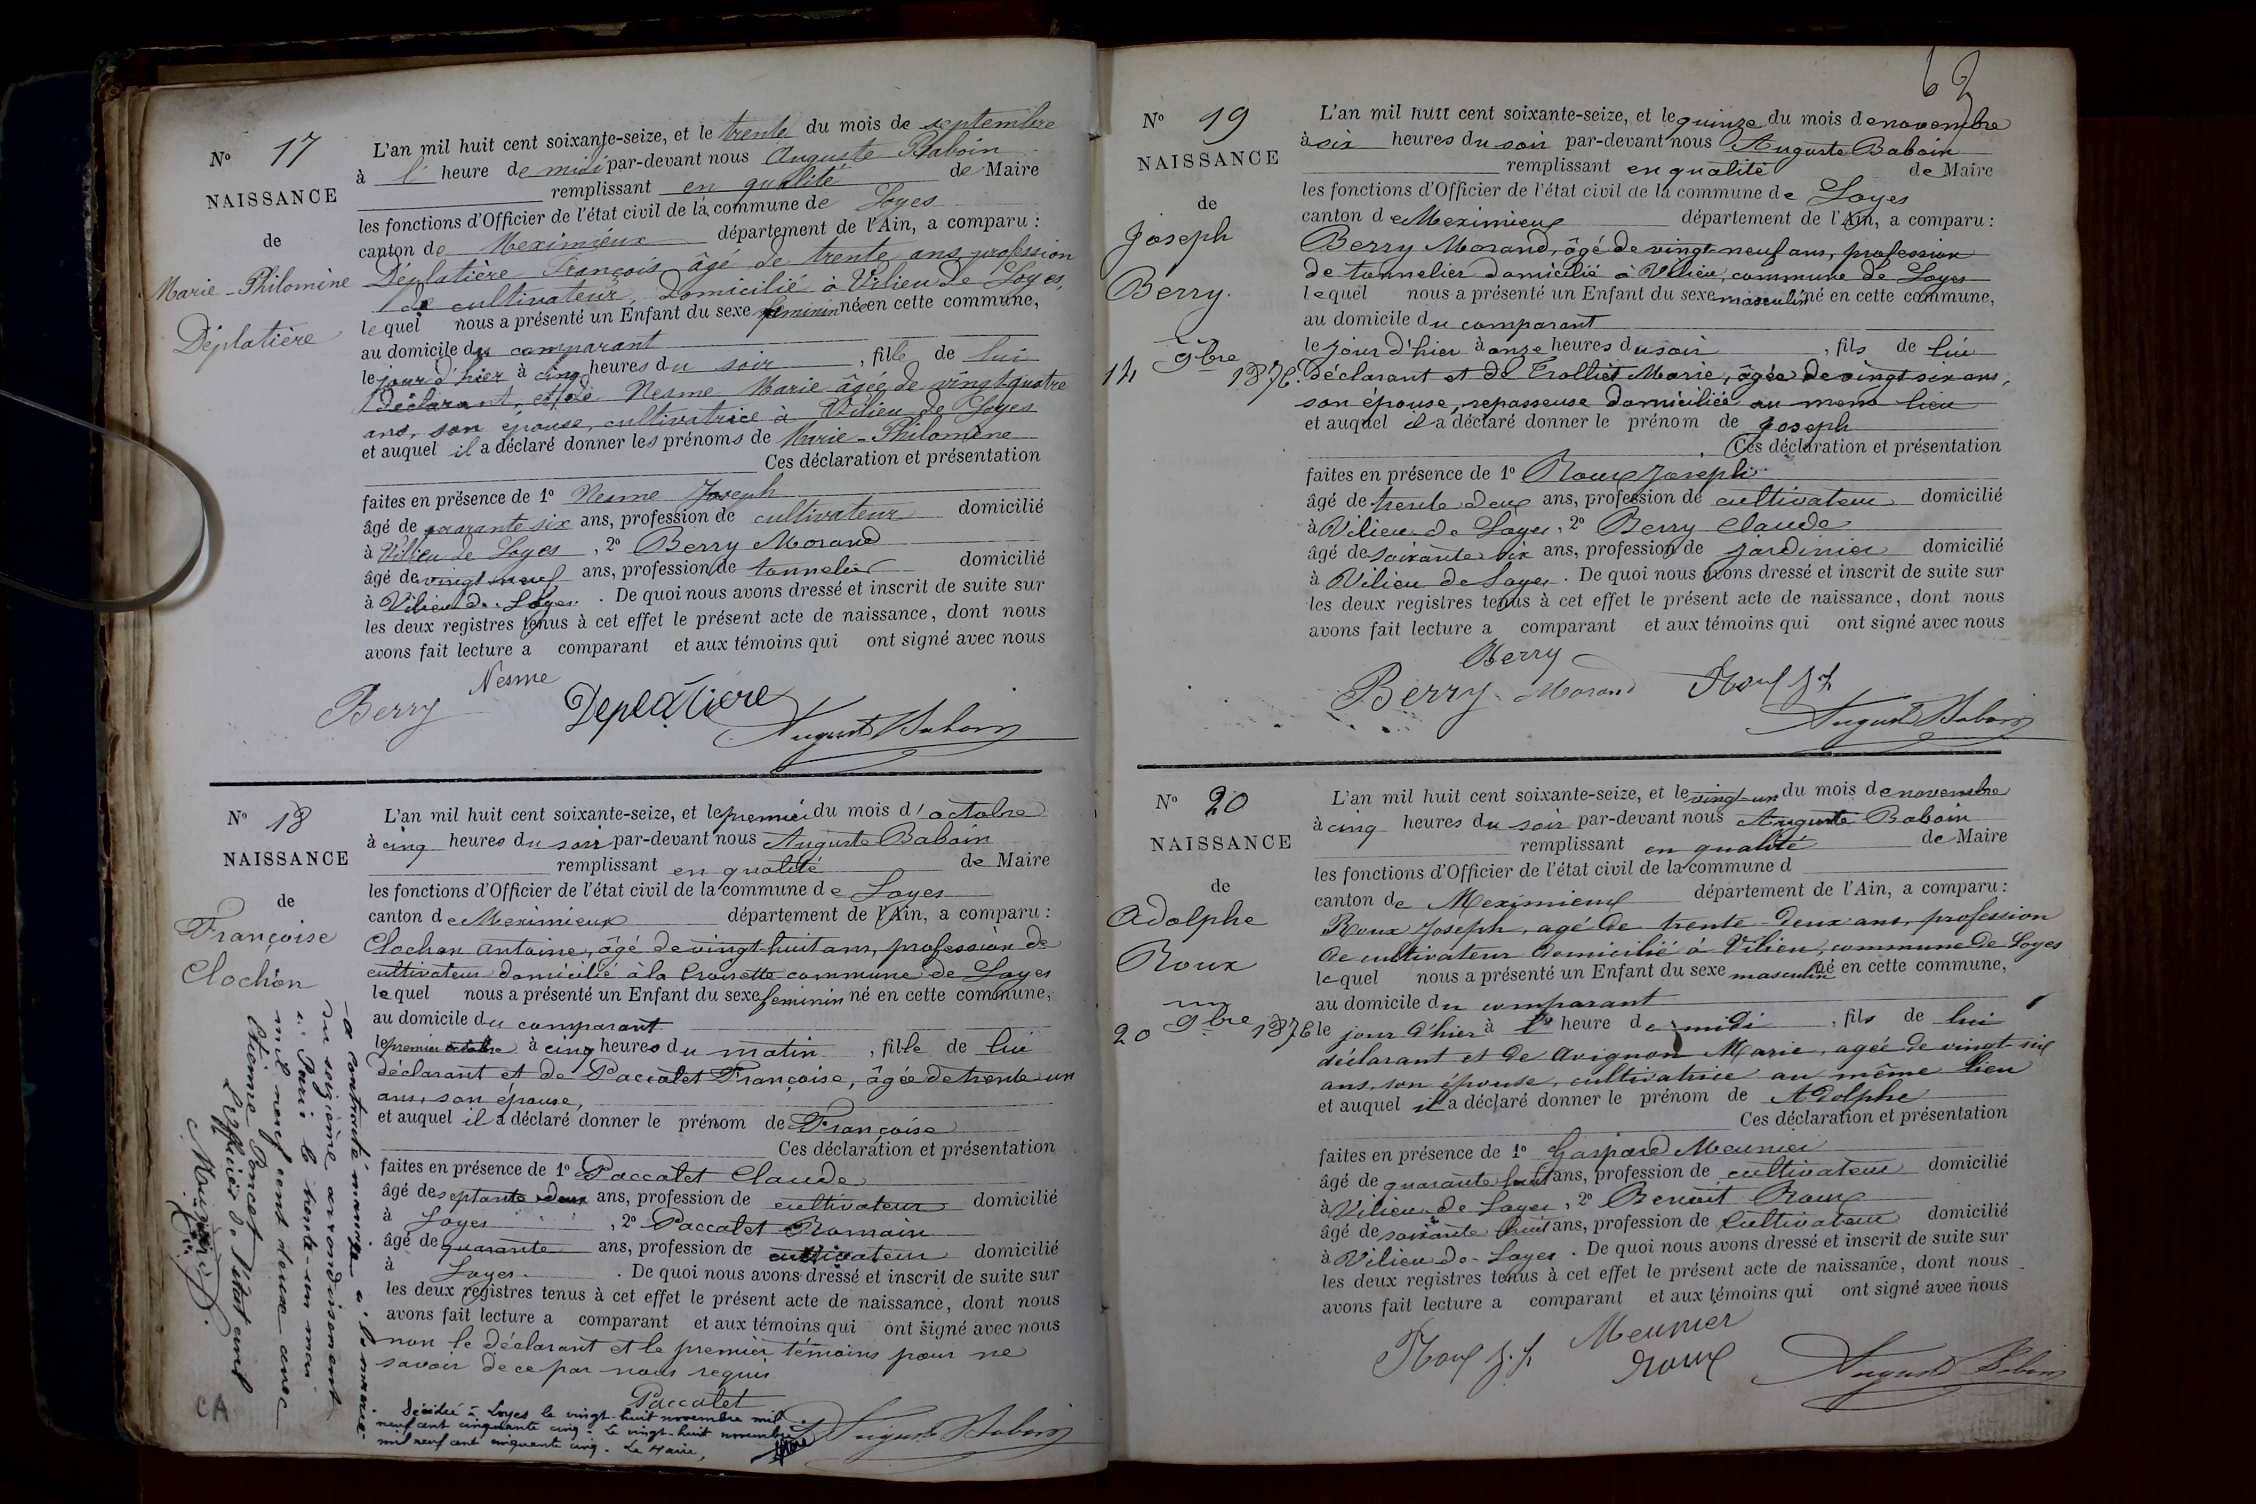 Nº 17
NAISSANCE
de
Marie-Philomène
Déplatière
L'an mil huit cent soixante-seize, et le trente du mois de septembre
à 1 heure de midi par-devant nous Auguste Baboin
remplissant en qualité de Maire
les fonctions d'Officier de l'état civil de la commune de Loyes
canton de Meximieux département de l'Ain, a comparu :
Déplatière François âgé de trente ans, profession
de cultivateur, domicilié à Vilieu de Loyes,
lequel nous a présenté un Enfant du sexe féminin née en cette commune,
au domicile du comparant
le jour d'hier à cinq heures du soir, fille de lui
déclarant, et de Nesme Marie âgée de vingt-quatre
ans, son épouse, cultivatrice à Vilieu de Loyes
et auquel il a déclaré donner les prénoms de Marie-Philomène
Ces déclaration et présentation
faites en présence de 1º Nesme Joseph
âgé de quarante six ans, profession de cultivateur domicilié
à Vilieu de Loyes, 2º Berry Morand
âgé de vingt neuf ans, profession de tonnelier domicilié
à Vilieu de Loyes. De quoi nous avons dressé et inscrit de suite sur
les deux registres tenus à cet effet le présent acte de naissance, dont nous
avons fait lecture a comparant et aux témoins qui ont signé avec nous
Nesme
Berry Deplatiere
Auguste Baboin
Nº 18
NAISSANCE
de
Françoise
Clochon
L'an mil huit cent soixante-seize, et le premier du mois d'octobre
à cinq heures du soir par-devant nous Auguste Baboin
remplissant en qualité de Maire
les fonctions d'Officier de l'état civil de la commune de Loyes
canton de Meximieux département de l'Ain, a comparu :
Clochon Antoine, âgé de vingt-huit ans, profession de
cultivateur domicilié à la Croisette commune de Loyes
lequel nous a présenté un Enfant du sexe féminin né en cette commune,
au domicile du comparant
le premier octobre à cinq heures du matin, fille de lui
déclarant et de Paccalet Françoise, âgée de trente un
ans, son épouse,
et auquel il a déclaré donner le prénom de Françoise
Ces déclaration et présentation
faites en présence de 1º Paccalet Claude
âgé de septante deux ans, profession de cultivateur domicilié
à Loyes, 2º Paccalet Romain
âgé de quarante ans, profession de cultivateur domicilié
à Loyes. De quoi nous avons dressé et inscrit de suite sur
les deux registres tenus à cet effet le présent acte de naissance, dont nous
avons fait lecture a comparant et aux témoins qui ont signé avec nous
non le déclarant et le premier témoins pour ne
savoir de ce par nous requis
Paccalet
Auguste Baboin
Décédée à Loyes le vingt-huit novembre mil
neuf cent cinquante cinq. Le vingt-huit novembre
mil neuf cent cinquante cinq. Le Maire,
a contracté mariage à la mairie
du seizième arrondissement
à Paris le trente-un mai
mil neuf cent deux avec
Etienne Poncet
L'officier de l'état civil
CA
62
Nº 19
NAISSANCE
de
Joseph
Berry.
14 9bre 1876.
L'an mil huit cent soixante-seize, et le quinze du mois de novembre
à six heures du soir par-devant nous Auguste Baboin
remplissant en qualité de Maire
les fonctions d'Officier de l'état civil de la commune de Loyes
canton de Meximieux département de l'Ain, a comparu :
Berry Morand, âgé de vingt-neuf ans, profession
de tonnelier domicilié à Vilieu, commune de Loyes
lequel nous a présenté un Enfant du sexe masculin né en cette commune,
au domicile du comparant
le jour d'hier à onze heures du soir, fils de lui
déclarant et de Trolliet Marie, âgée de vingt six ans,
son épouse, repasseuse domiciliée au meme lieu
et auquel il a déclaré donner le prénom de Joseph
Ces déclaration et présentation
faites en présence de 1º Roux Joseph
âgé de trente deux ans, profession de cultivateur domicilié
à Vilieu de Loyes, 2º Berry Claude
âgé de soixante six ans, profession de jardinier domicilié
à Vilieu de Loyes. De quoi nous avons dressé et inscrit de suite sur
les deux registres tenus à cet effet le présent acte de naissance, dont nous
avons fait lecture a comparant et aux témoins qui ont signé avec nous
Berry
Berry Morand Roux Jh
Auguste Baboin
Nº 20
NAISSANCE
de
Adolphe
Roux
20 9bre 1876
L'an mil huit cent soixante-seize, et le vingt-un du mois de novembre
à cinq heures du soir par-devant nous Auguste Baboin
remplissant en qualité de Maire
les fonctions d'Officier de l'état civil de la commune d
canton de Meximieux département de l'Ain, a comparu :
Roux Joseph, agé de trente-deux ans, profession
de cultivateur domicilié à Vilieu, commune de Loyes
lequel nous a présenté un Enfant du sexe masculin né en cette commune,
au domicile du comparant
le jour d'hier à heure de midi, fils de lui
déclarant et de Avignon Marie, agée de vingt-six
ans, son épouse, cultivatrice au même lieu
et auquel il a déclaré donner le prénom de Adolphe
Ces déclaration et présentation
faites en présence de 1º Gaspard Meunier
âgé de quarante huit ans, profession de cultivateur domicilié
à Vilieu de Loyes, 2º Benoit Roux
âgé de soixante huit ans, profession de Cultivateur domicilié
à Vilieu de Loyes. De quoi nous avons dressé et inscrit de suite sur
les deux registres tenus à cet effet le présent acte de naissance, dont nous
avons fait lecture a comparant et aux témoins qui ont signé avec nous
Roux J.h Meunier
Roux
Auguste Baboin